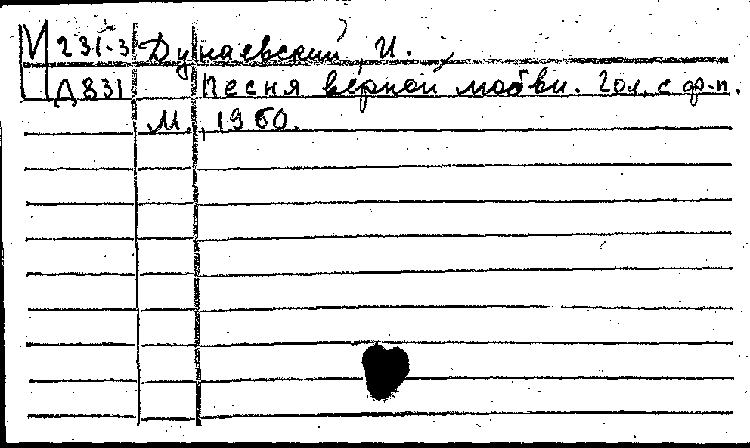 М 231-3 Дунаевский, И.
Д831 Песня верной любви. Гол. с ф-п.
М., 1960.